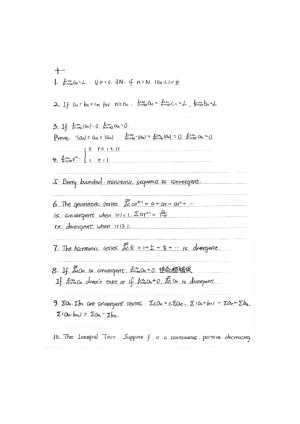 十一
1. lim aₙ = L  ∀ε>0, ∃N, if n>N, |aₙ-L|<ε
2. If aₙ ≤ bₙ ≤ cₙ for n≥n₀, lim aₙ = lim cₙ = L, lim bₙ = L.
3. If lim |aₙ| = 0, lim aₙ = 0.
Prove: -|aₙ| ≤ aₙ ≤ |aₙ|  lim -|aₙ| = lim |aₙ| = 0, lim aₙ = 0.
4. lim rⁿ = { 0 -1<r<1
1 r=1
5. Every bounded monotonic sequence is convergent.
6. The geometric series Σ arⁿ⁻¹ = a + ar + ar² + ⋯
is convergent when |r|<1,
is divergent when |r|≥1.
7. The harmonic series Σ 1/n = 1 + 1/2 + 1/3 + ⋯ is divergent.
8. If Σ aₙ is convergent, lim aₙ = 0.
If lim aₙ doesn't exist or if lim aₙ ≠ 0, Σ aₙ is divergent.
9. Σaₙ, Σbₙ are convergent series Σcaₙ = cΣaₙ,
Σ(aₙ-bₙ) = Σaₙ - Σbₙ.
10. The Integral Test Suppose f is a continuous, positive decreasing